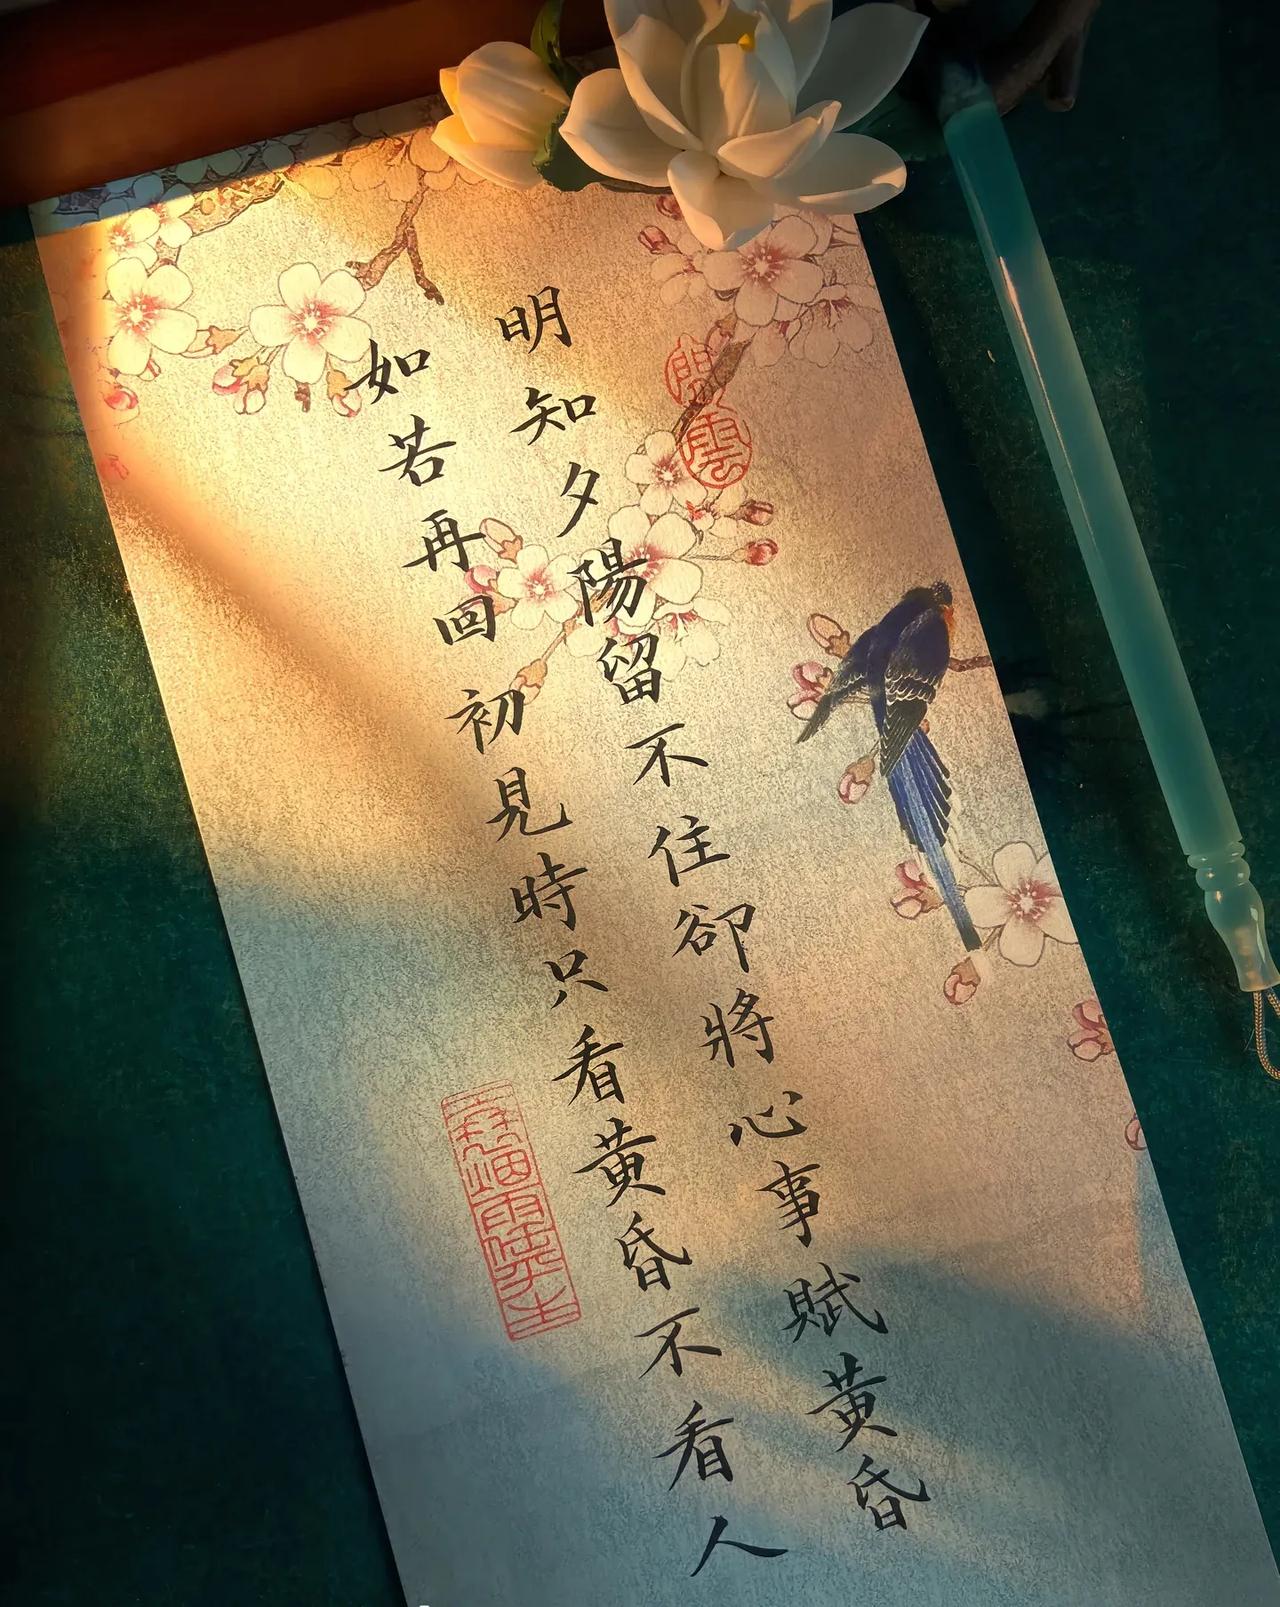 明知夕陽留不住卻將心事賦黃昏
如若再回初見時只看黃昏不看人